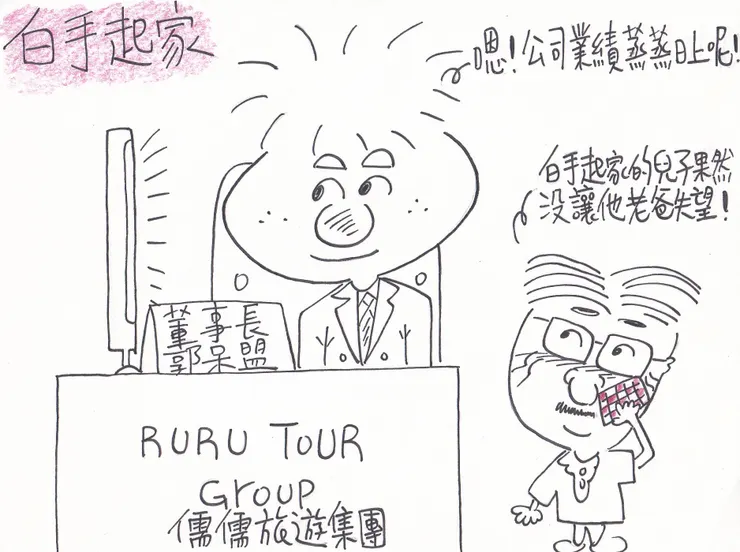 白手起家
嗯!公司業績蒸蒸日上呢!
白手起家的兒子果然
没讓他老爸失望!
董事長
郭呆盟
RURU TOUR
GROUP
儒儒旅遊集團